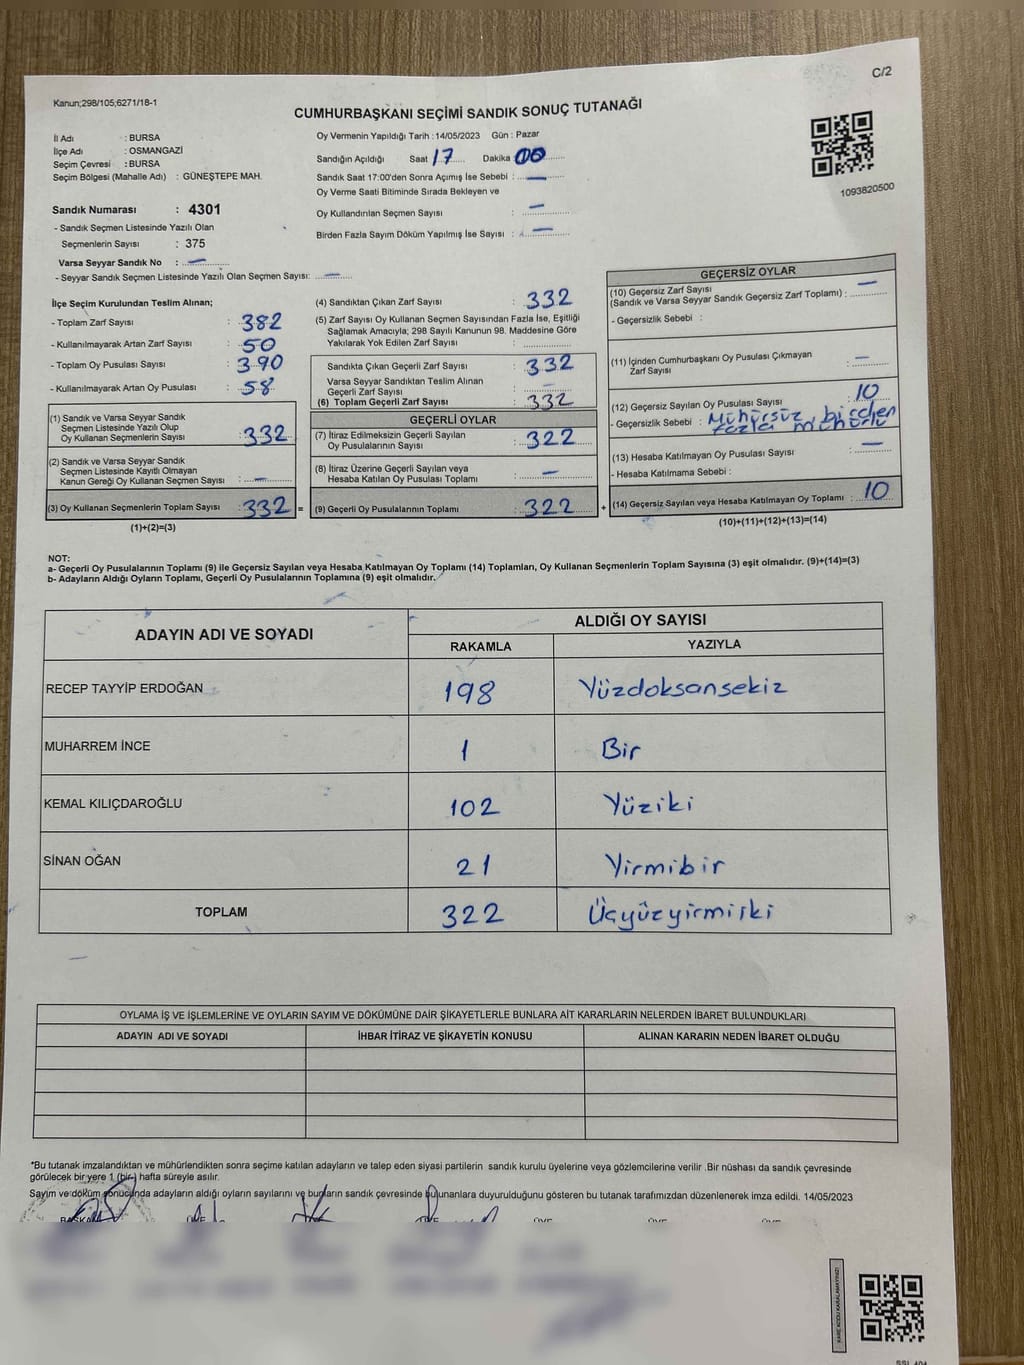 C/2
Kanun;298/105;6271/18-1
CUMHURBAŞKANI SEÇİMİ SANDIK SONUÇ TUTANAĞI
İl Adı : BURSA
İlçe Adı : OSMANGAZİ
Seçim Çevresi : BURSA
Seçim Bölgesi (Mahalle Adı) : GÜNEŞTEPE MAH.
Sandık Numarası : 4301
- Sandık Seçmen Listesinde Yazılı Olan
Seçmenlerin Sayısı : 375
Varsa Seyyar Sandık No : —
- Seyyar Sandık Seçmen Listesinde Yazılı Olan Seçmen Sayısı: —
Oy Vermenin Yapıldığı Tarih : 14/05/2023 Gün : Pazar
Sandığın Açıldığı Saat 17 Dakika 00
Sandık Saat 17:00'den Sonra Açımış İse Sebebi : —
Oy Verme Saati Bitiminde Sırada Bekleyen ve
Oy Kullandırılan Seçmen Sayısı : —
Birden Fazla Sayım Döküm Yapılmış İse Sayısı : —
1093820500
İlçe Seçim Kurulundan Teslim Alınan;
- Toplam Zarf Sayısı : 382
- Kullanılmayarak Artan Zarf Sayısı : 50
- Toplam Oy Pusulası Sayısı : 390
- Kullanılmayarak Artan Oy Pusulası : 58
(1) Sandık ve Varsa Seyyar Sandık
Seçmen Listesinde Yazılı Olup
Oy Kullanan Seçmenlerin Sayısı : 332
(2) Sandık ve Varsa Seyyar Sandık
Seçmen Listesinde Kayıtlı Olmayan
Kanun Gereği Oy Kullanan Seçmen Sayısı : —
(3) Oy Kullanan Seçmenlerin Toplam Sayısı : 332 =
(1)+(2)=(3)
(4) Sandıktan Çıkan Zarf Sayısı : 332
(5) Zarf Sayısı Oy Kullanan Seçmen Sayısından Fazla İse, Eşitliği
Sağlamak Amacıyla; 298 Sayılı Kanunun 98. Maddesine Göre
Yakılarak Yok Edilen Zarf Sayısı :
Sandıkta Çıkan Geçerli Zarf Sayısı : 332
Varsa Seyyar Sandıktan Teslim Alınan
Geçerli Zarf Sayısı : —
(6) Toplam Geçerli Zarf Sayısı : 332
GEÇERLİ OYLAR
(7) İtiraz Edilmeksizin Geçerli Sayılan
Oy Pusulalarının Sayısı : 322
(8) İtiraz Üzerine Geçerli Sayılan veya
Hesaba Katılan Oy Pusulası Toplamı : —
(9) Geçerli Oy Pusulalarının Toplamı : 322 +
GEÇERSİZ OYLAR
(10) Geçersiz Zarf Sayısı
(Sandık ve Varsa Seyyar Sandık Geçersiz Zarf Toplamı) : —
- Geçersizlik Sebebi :
(11) İçinden Cumhurbaşkanı Oy Pusulası Çıkmayan
Zarf Sayısı : —
(12) Geçersiz Sayılan Oy Pusulası Sayısı : 10
- Geçersizlik Sebebi : Mühürsüz, birden
fazla mühürlü
(13) Hesaba Katılmayan Oy Pusulası Sayısı : —
- Hesaba Katılmama Sebebi :
(14) Geçersiz Sayılan veya Hesaba Katılmayan Oy Toplamı : 10
(10)+(11)+(12)+(13)=(14)
NOT:
a- Geçerli Oy Pusulalarının Toplamı (9) ile Geçersiz Sayılan veya Hesaba Katılmayan Oy Toplamı (14) Toplamları, Oy Kullanan Seçmenlerin Toplam Sayısına (3) eşit olmalıdır. (9)+(14)=(3)
b- Adayların Aldığı Oyların Toplamı, Geçerli Oy Pusulalarının Toplamına (9) eşit olmalıdır.
ADAYIN ADI VE SOYADI ALDIĞI OY SAYISI
RAKAMLA YAZIYLA
RECEP TAYYİP ERDOĞAN 198 Yüzdoksansekiz
MUHARREM İNCE 1 Bir
KEMAL KILIÇDAROĞLU 102 Yüziki
SİNAN OĞAN 21 Yirmibir
TOPLAM 322 Üçyüzyirmiiki
OYLAMA İŞ VE İŞLEMLERİNE VE OYLARIN SAYIM VE DÖKÜMÜNE DAİR ŞİKAYETLERLE BUNLARA AİT KARARLARIN NELERDEN İBARET BULUNDUKLARI
ADAYIN ADI VE SOYADI İHBAR İTİRAZ VE ŞİKAYETİN KONUSU ALINAN KARARIN NEDEN İBARET OLDUĞU
*Bu tutanak imzalandıktan ve mühürlendikten sonra seçime katılan adayların ve talep eden siyasi partilerin sandık kurulu üyelerine veya gözlemcilerine verilir .Bir nüshası da sandık çevresinde
görülecek bir yere 1 (bir) hafta süreyle asılır.
Sayım ve döküm sonucunda adayların aldığı oyların sayılarını ve bunların sandık çevresinde bulunanlara duyurulduğunu gösteren bu tutanak tarafımızdan düzenlenerek imza edildi. 14/05/2023
BAŞKAN ÜYE ÜYE ÜYE ÜYE